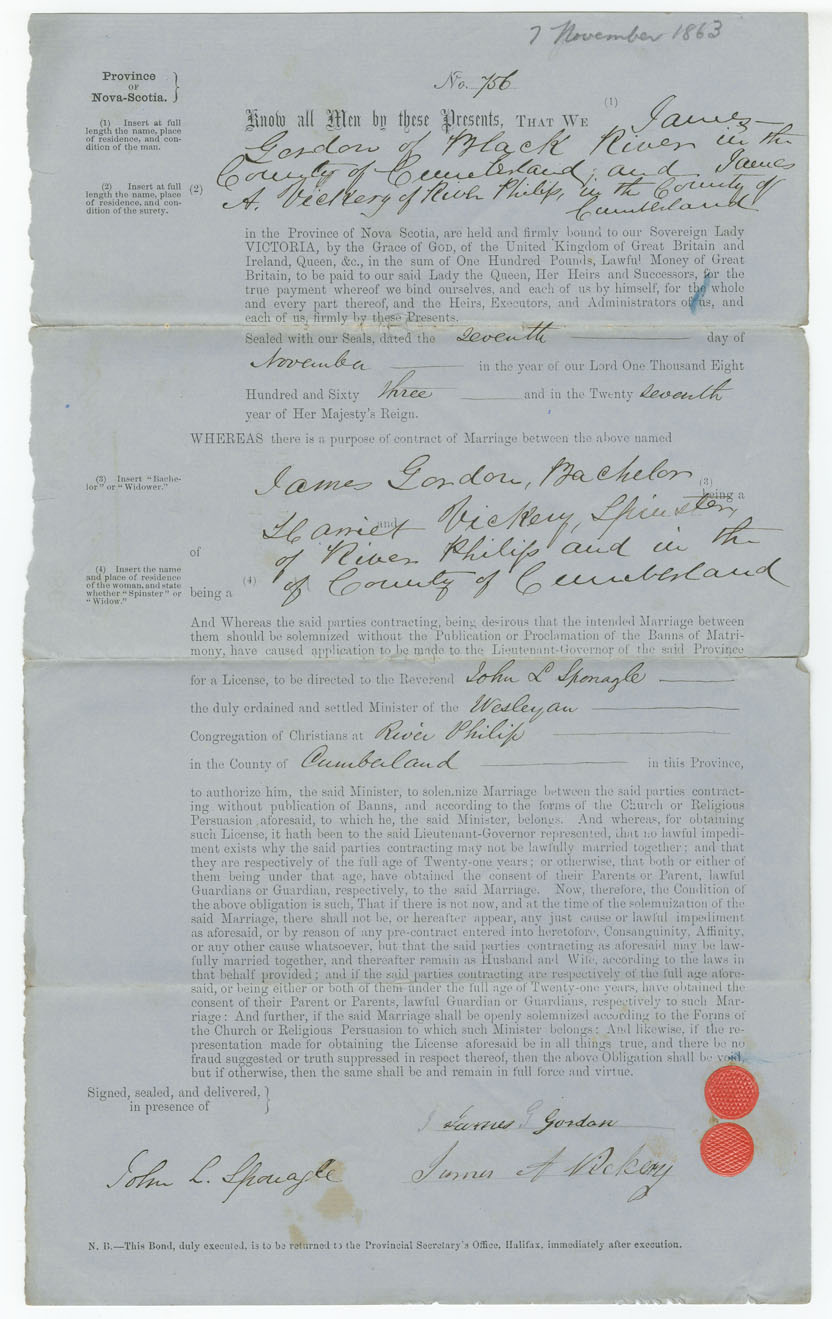 7 November 1863
Province
OF
Nova-Scotia.
No. 756
(1) Insert at full
length the name, place
of residence, and con-
dition of the man.
(1)
Know all Men by these Presents, THAT WE James
Gordon of Black River in the
County of Cumberland, and James
(2) Insert at full
length the name, place
of residence, and con-
dition of the surety.
(2)
A. Vickery of River Philip, in the County of
Cumberland
in the Province of Nova Scotia, are held and firmly bound to our Sovereign Lady
VICTORIA, by the Grace of GOD, of the United Kingdom of Great Britain and
Ireland, Queen, &c., in the sum of One Hundred Pounds, Lawful Money of Great
Britain, to be paid to our said Lady the Queen, Her Heirs and Successors, for the
true payment whereof we bind ourselves, and each of us by himself, for the whole
and every part thereof, and the Heirs, Executors, and Administrators of us, and
each of us, firmly by these Presents.
Sealed with our Seals, dated the seventh day of
November in the year of our Lord One Thousand Eight
Hundred and Sixty three and in the Twenty seventh
year of Her Majesty's Reign.
WHEREAS there is a purpose of contract of Marriage between the above named
(3) Insert "Bache-
lor" or "Widower."
James Gordon, Bachelor
(3)
being a
and
Harriet Vickery, Spinster,
of of River Philip and in the
(4) Insert the name
and place of residence
of the woman, and state
whether "Spinster" or
"Widow."
being a (4) of County of Cumberland
And Whereas the said parties contracting, being desirous that the intended Marriage between
them should be solemnized without the Publication or Proclamation of the Banns of Matri-
mony, have caused application to be made to the Lieutenant-Governor of the said Province
for a License, to be directed to the Reverend John L Sponagle
the duly ordained and settled Minister of the Wesleyan
Congregation of Christians at River Philip
in the County of Cumberland in this Province,
to authorize him, the said Minister, to solemnize Marriage between the said parties contract-
ing without publication of Banns, and according to the forms of the Church or Religious
Persuasion aforesaid, to which he, the said Minister, belongs. And whereas, for obtaining
such License, it hath been to the said Lieutenant-Governor represented, that no lawful impedi-
ment exists why the said parties contracting may not be lawfully married together; and that
they are respectively of the full age of Twenty-one years; or otherwise, that both or either of
them being under that age, have obtained the consent of their Parents or Parent, lawful
Guardians or Guardian, respectively, to the said Marriage. Now, therefore, the Condition of
the above obligation is such, That if there is not now, and at the time of the solemnization of the
said Marriage, there shall not be, or hereafter appear, any just cause or lawful impediment
as aforesaid, or by reason of any pre-contract entered into heretofore, Consanguinity, Affinity,
or any other cause whatsoever, but that the said parties contracting as aforesaid may be law-
fully married together, and thereafter remain as Husband and Wife, according to the laws in
that behalf provided; and if the said parties contracting are respectively of the full age afore-
said, or being either or both of them under the full age of Twenty-one years, have obtained the
consent of their Parent or Parents, lawful Guardian or Guardians, respectively to such Mar-
riage: And further, if the said Marriage shall be openly solemnized according to the Forms of
the Church or Religious Persuasion to which such Minister belongs: And likewise, if the re-
presentation made for obtaining the License aforesaid be in all things true, and there be no
fraud suggested or truth suppressed in respect thereof, then the above Obligation shall be void,
but if otherwise, then the same shall be and remain in full force and virtue.
Signed, sealed, and delivered,
in presence of
James Gordon
John L. Sponagle James A Vickery
N. B.—This Bond, duly executed, is to be returned to the Provincial Secretary's Office, Halifax, immediately after execution.